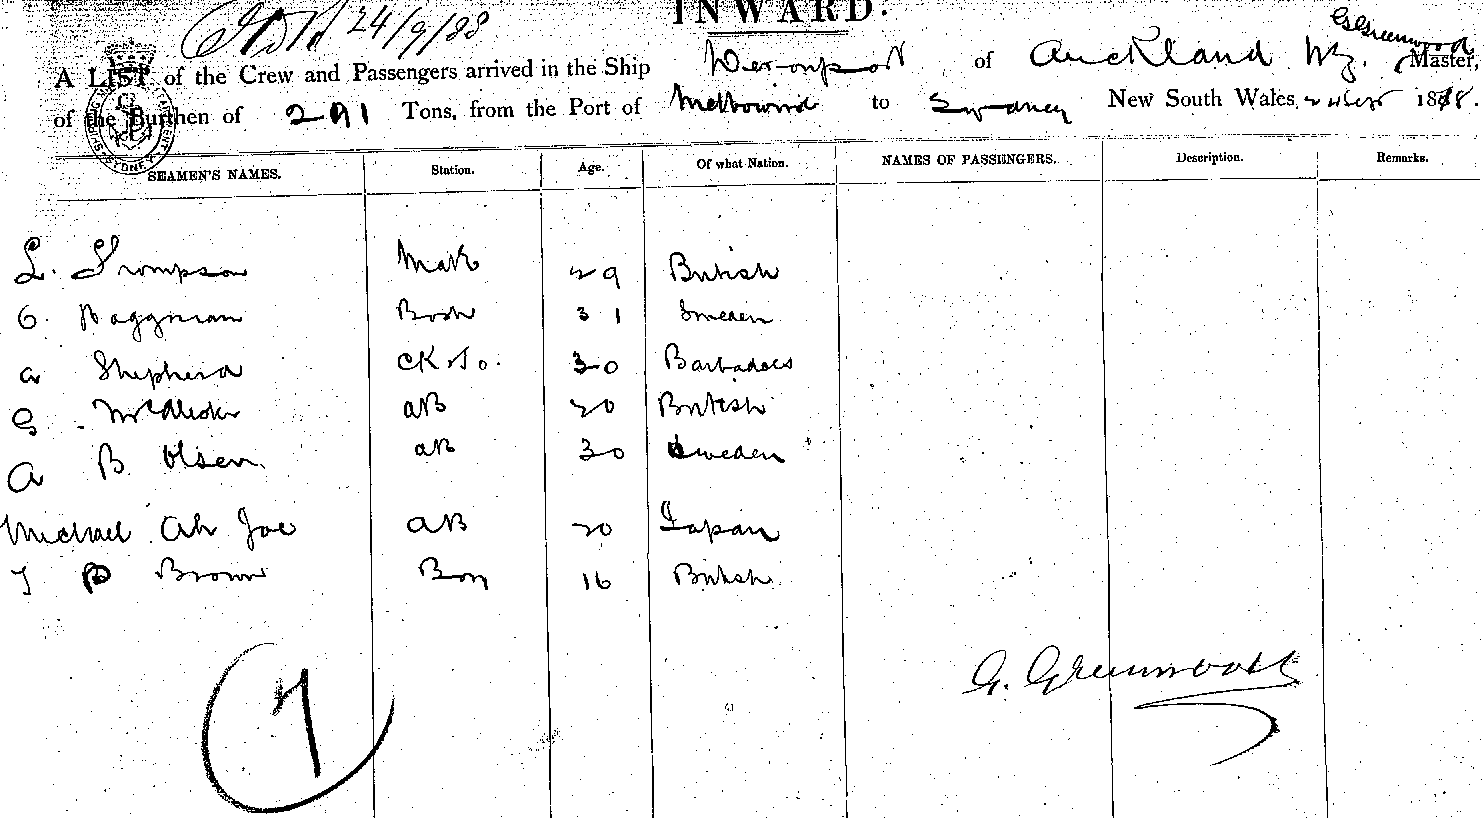 INWARD.
24/9/88
G Greenwood
A LIST of the Crew and Passengers arrived in the Ship Devonport of Auckland NZ. Master,
of the Burthen of 291 Tons, from the Port of Melbourne to Sydney New South Wales, 1888.
SEAMEN'S NAMES. Station. Age. Of what Nation. NAMES OF PASSENGERS. Description. Remarks.
L. Thompson Mate 29 British
Haggman Bosn 31 Sweden
A Shepherd Ck & So. 30 Barbadoes
G. AB 20 British
A B Olsen. AB 30 Sweden
Michael Ah Joe AB 20 Japan
B Brown Boy 16 British
7
G. Greenwood